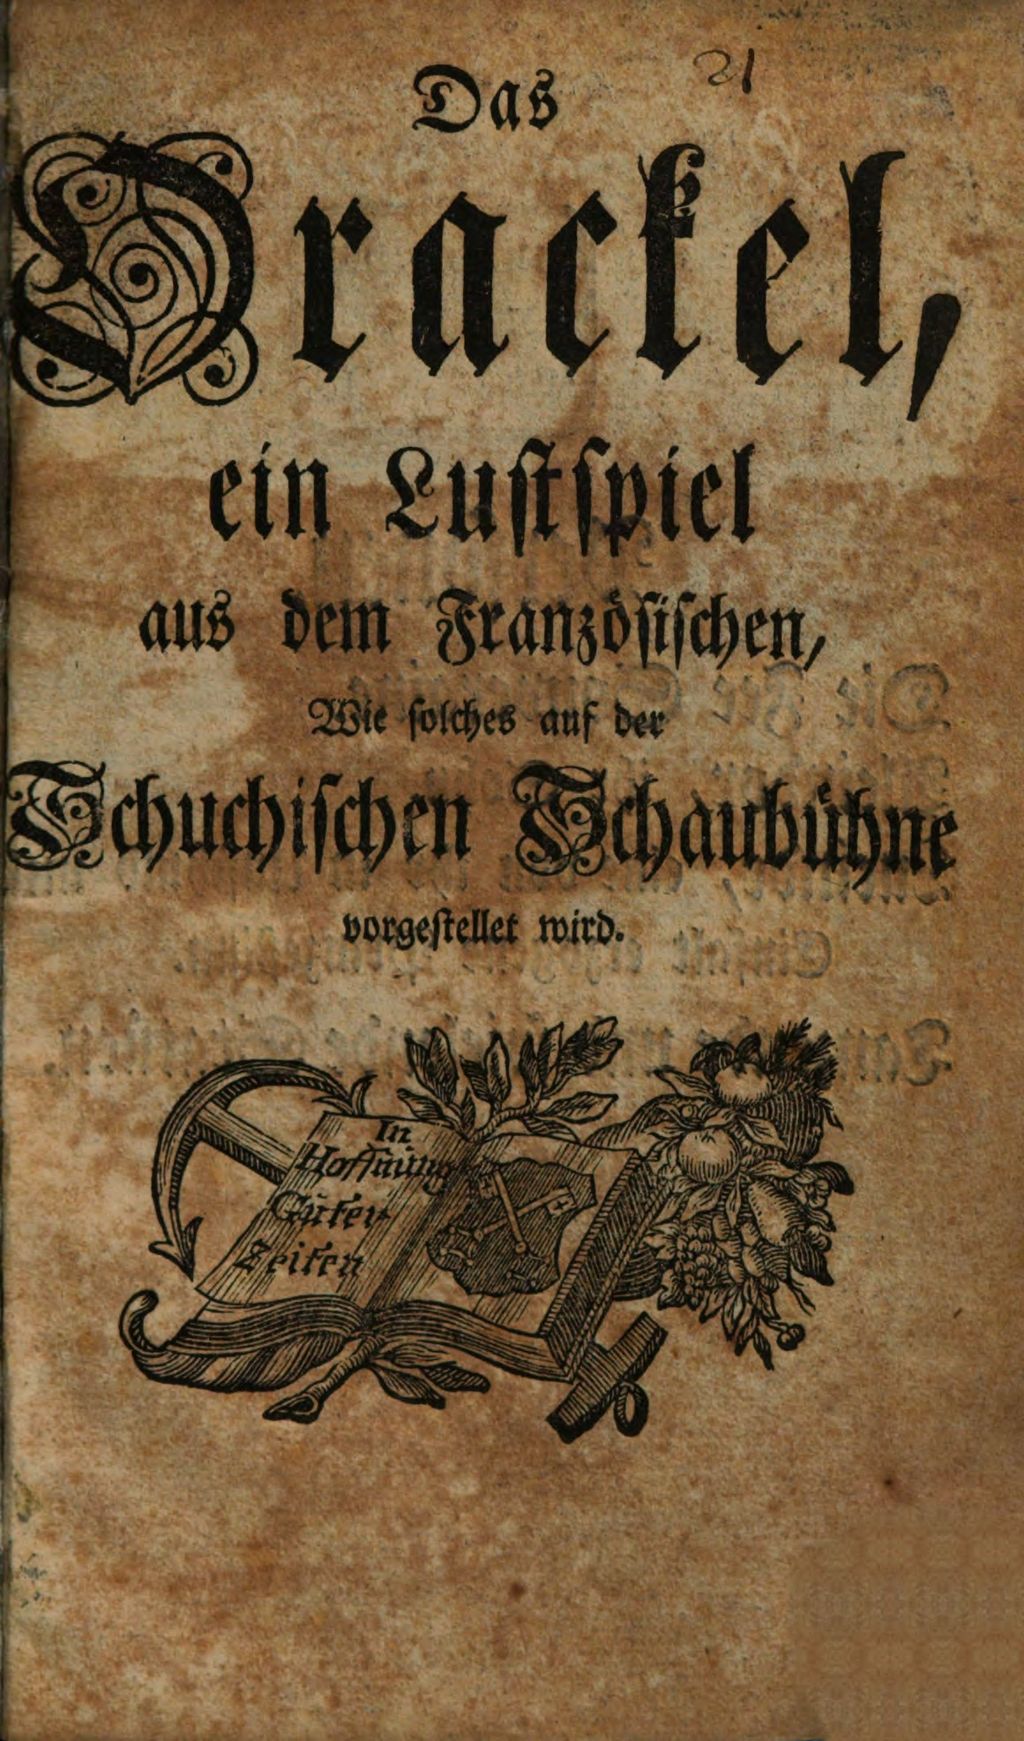 21
Das
Orackel,
ein Lustspiel
aus dem Französischen,
Wie solches auf der
Schuchischen Schaubühne
vorgestellet wird.
In
Hoffnung
Guter
Zeiten